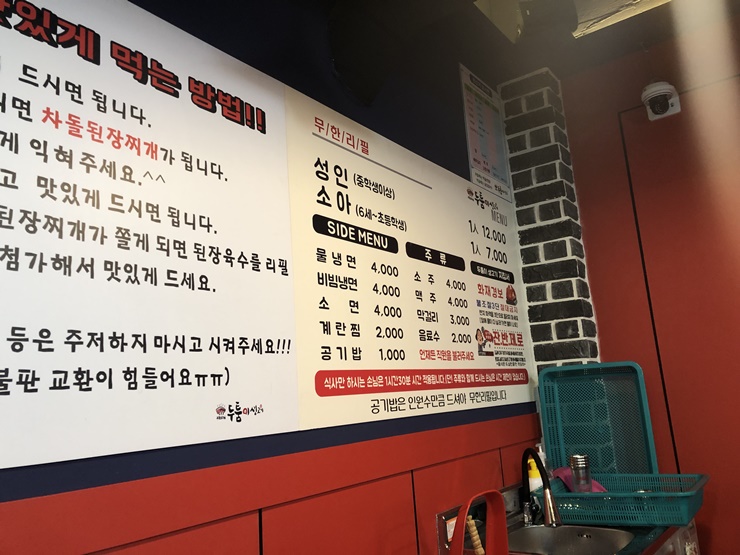 맛있게 먹는 방법!!
드시면 됩니다.
차돌된장찌개가 됩니다.
게 익혀주세요.^^
고 맛있게 드시면 됩니다.
된장찌개가 쫄게 되면 된장육수를 리필
첨가해서 맛있게 드세요.
등은 주저하지 마시고 시켜주세요!!!
불판 교환이 힘들어요ㅠㅠ)
무/한/리/필
MENU
성인 (중학생이상) 1人 12,000
소아 (6세~초등학생) 1人 7,000
SIDE MENU
물냉면 4,000
비빔냉면 4,000
소면 4,000
계란찜 2,000
공기밥 1,000
주류
소주 4,000
맥주 4,000
막걸리 3,000
음료수 2,000
언제든 직원을 불러주세요
화재경보
잔반제로
식사만 하시는 손님은 1시간30분 시간 적용됩니다 (단! 주류와 함께 드시는 손님은 시간 제한이 없습니다.)
공기밥은 인원수만큼 드셔야 무한리필입니다